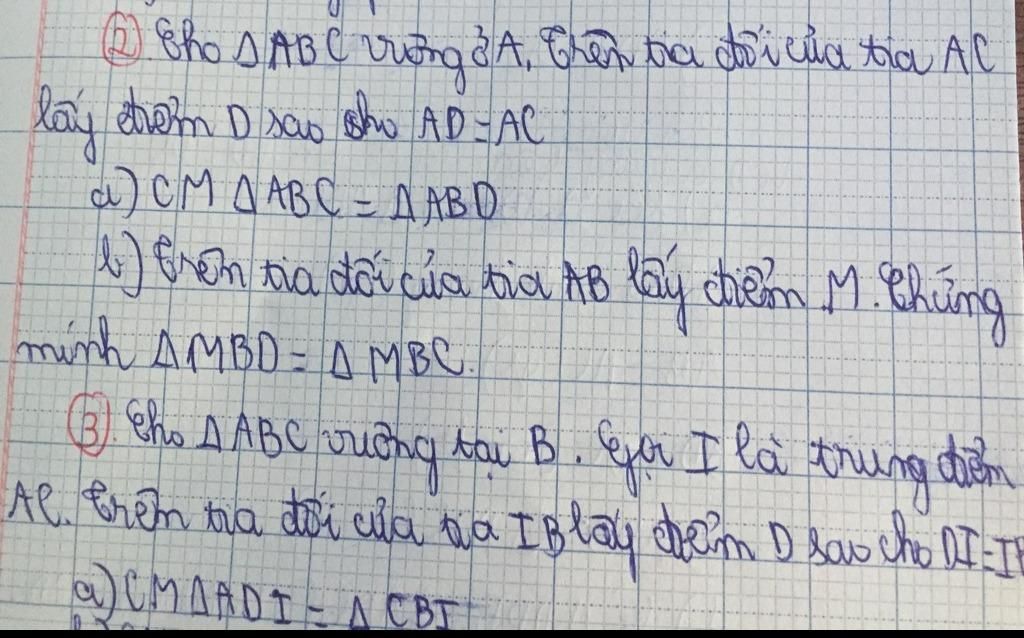 ② Cho ΔABC vuông ở A. Trên tia đối của tia AC
lấy điểm D sao cho AD = AC
a) CM ΔABC = ΔABD
b) Trên tia đối của tia AB lấy điểm M. Chứng
minh ΔMBD = ΔMBC.
③. Cho ΔABC vuông tại B. Gọi I là trung điểm
AC. Trên tia đối của tia IB lấy điểm D sao cho DI = IB
a) CM ΔADI = ΔCBI